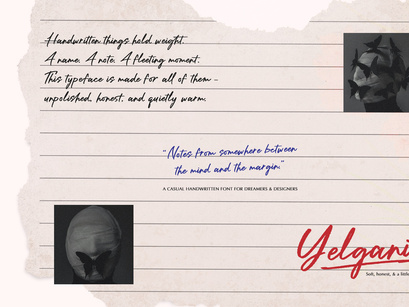 Handwritten things hold weight.
A name. A note. A fleeting moment.
This typeface is made for all of them -
unpolished, honest, and quietly warm.
"Notes from somewhere between
the mind and the margin."
A CASUAL HANDWRITTEN FONT FOR DREAMERS & DESIGNERS
Yelgani
Soft, honest, & a